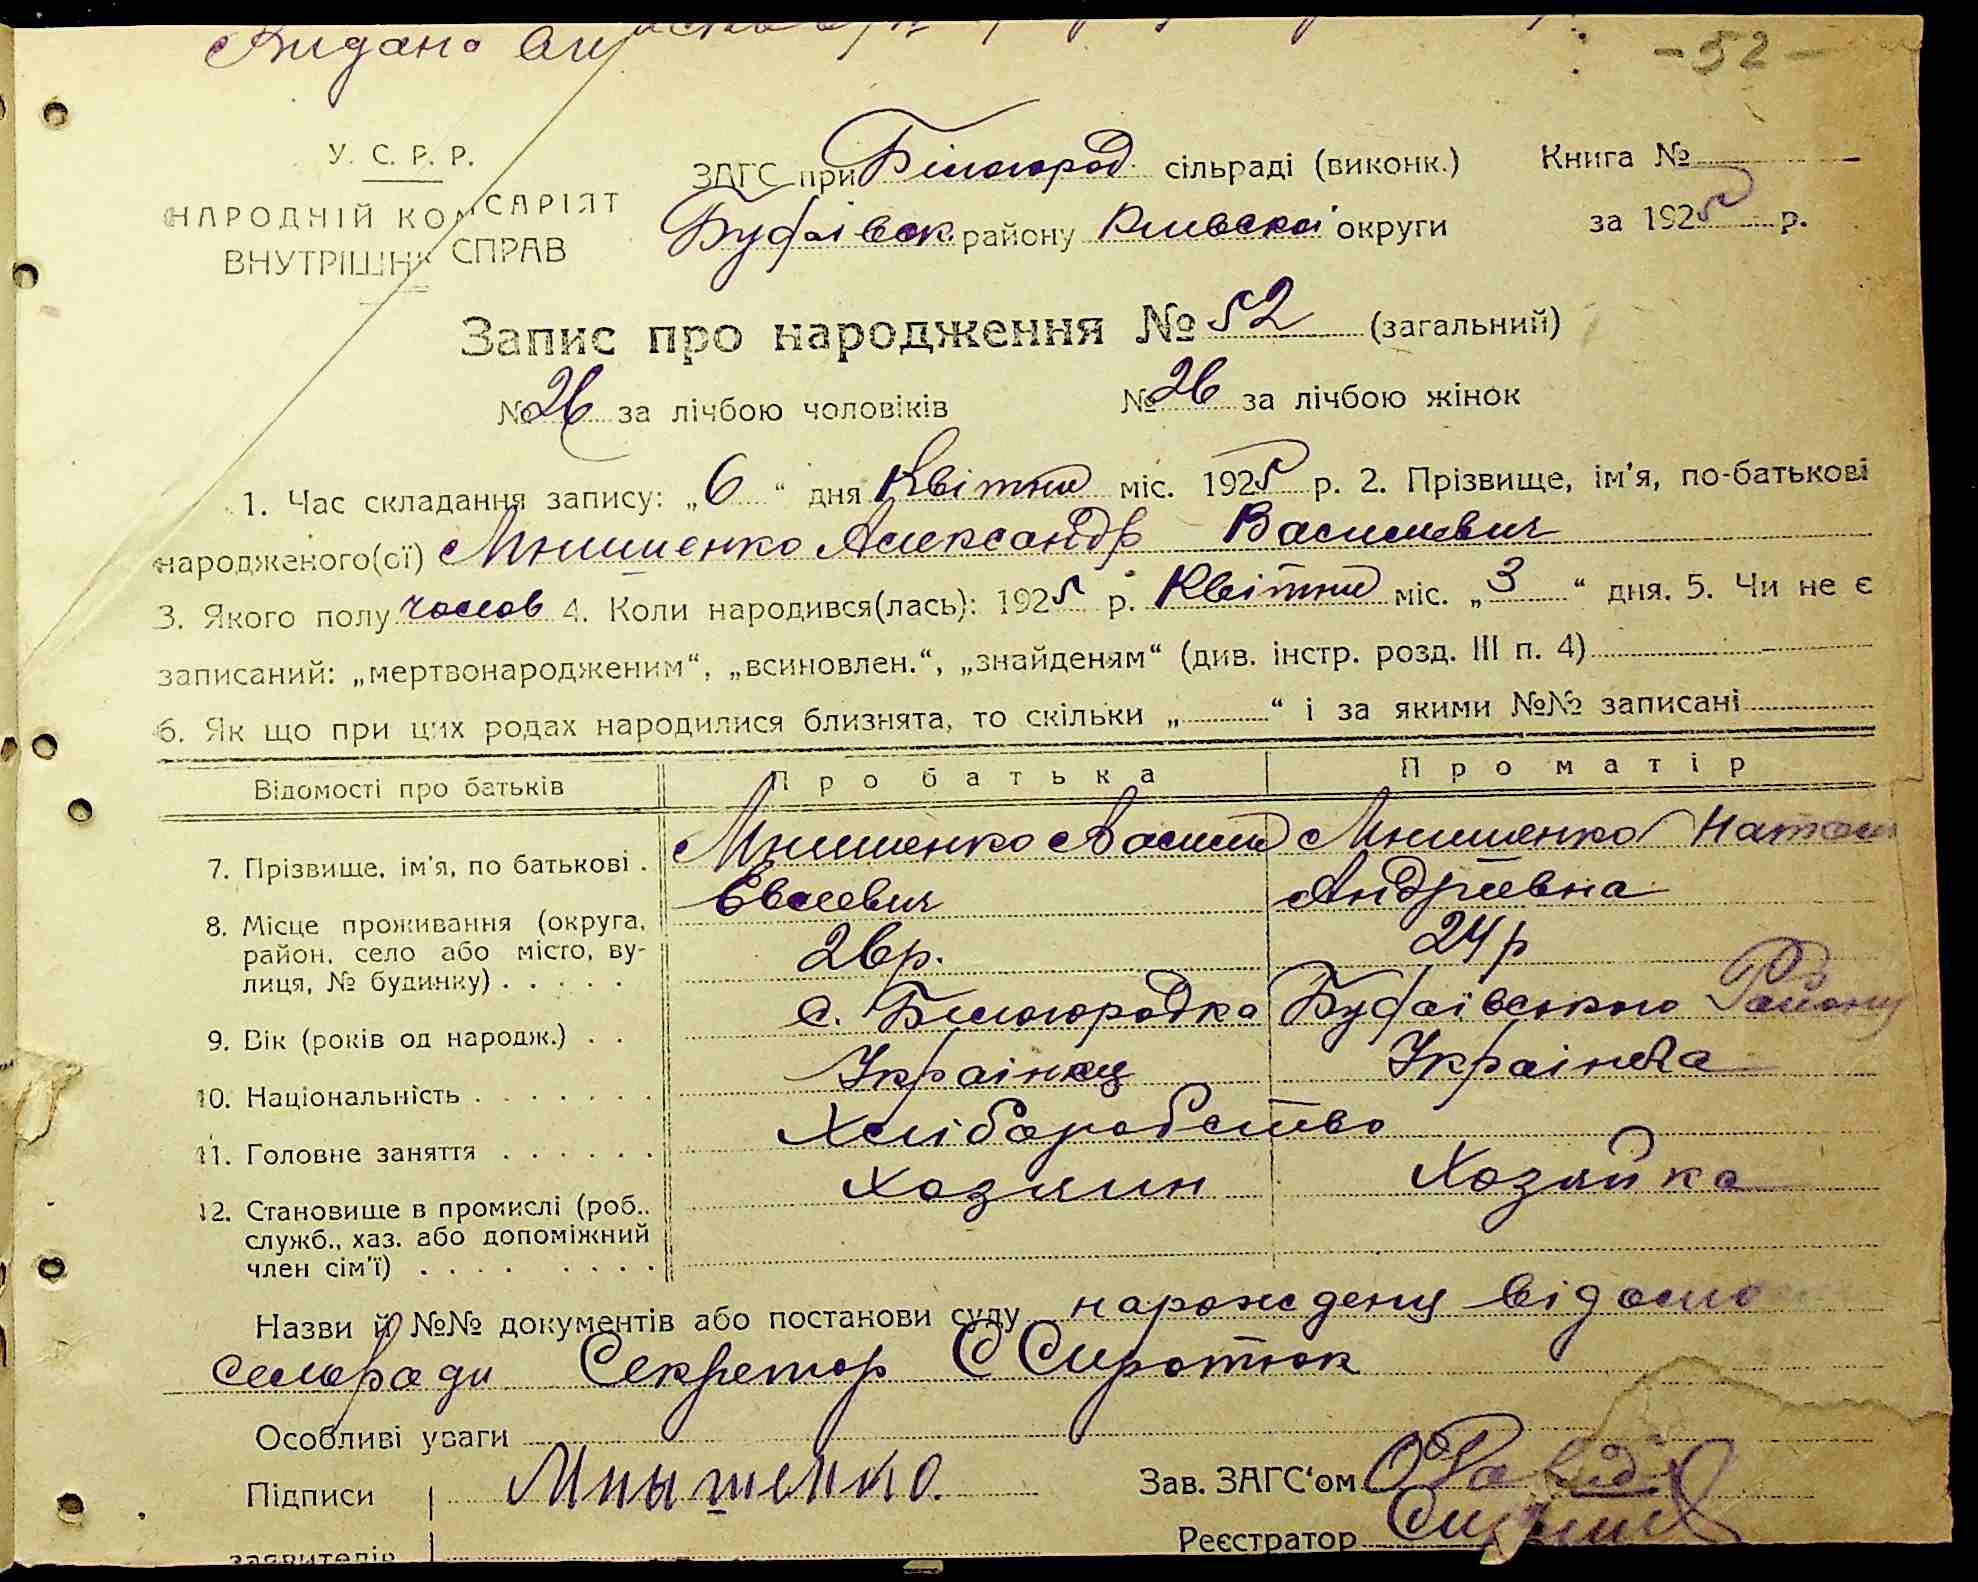 Видано
- 52 -
У. С. Р. Р.
НАРОДНІЙ КОМІСАРІЯТ
ВНУТРІШНІХ СПРАВ
ЗАГС при Білогород. сільраді (виконк.) Книга №
Будаївск. району Київскої округи за 1925 р.
Запис про народження № 52 (загальний)
№ 26 за лічбою чоловіків № 26 за лічбою жінок
1. Час складання запису: „6“ дня Квітня міс. 1925 р. 2. Прізвище, ім'я, по-батькові
народженого(ої) Мнишенко Александр Василевич
3. Якого полу чолов 4. Коли народився(лась): 1925 р. Квітня міс. „3“ дня. 5. Чи не є
записаний: „мертвонародженим“, „всиновлен.“, „знайденям“ (див. інстр. розд. III п. 4)
6. Як що при цих родах народилися близнята, то скільки „ “ і за якими №№ записані
Відомості про батьків Про батька Про матір
7. Прізвище, ім'я, по батькові . Мнишенко Василь Мнишенко Натал
Евсеевич Андріевна
8. Місце проживання (округа, район, село або місто, вулиця, № будинку) . . . . . 26 р. 24 р
9. Вік (років од народж.) . . с. Білогородка Будаївського Району
10. Національність . . . . . . . Українец Украінка
11. Головне заняття . . . . . . Хліборобство
12. Становище в промислі (роб., Хозяин Хозяйка
служб., хаз. або допоміжний
член сім'ї) . . . . . . . .
Назви й №№ документів або постанови суду нарождену відомо
сельради Секретар С Сиротюк
Особливі уваги
Підписи Мнышенко. Зав. ЗАГС'ом
заявителів Реєстратор